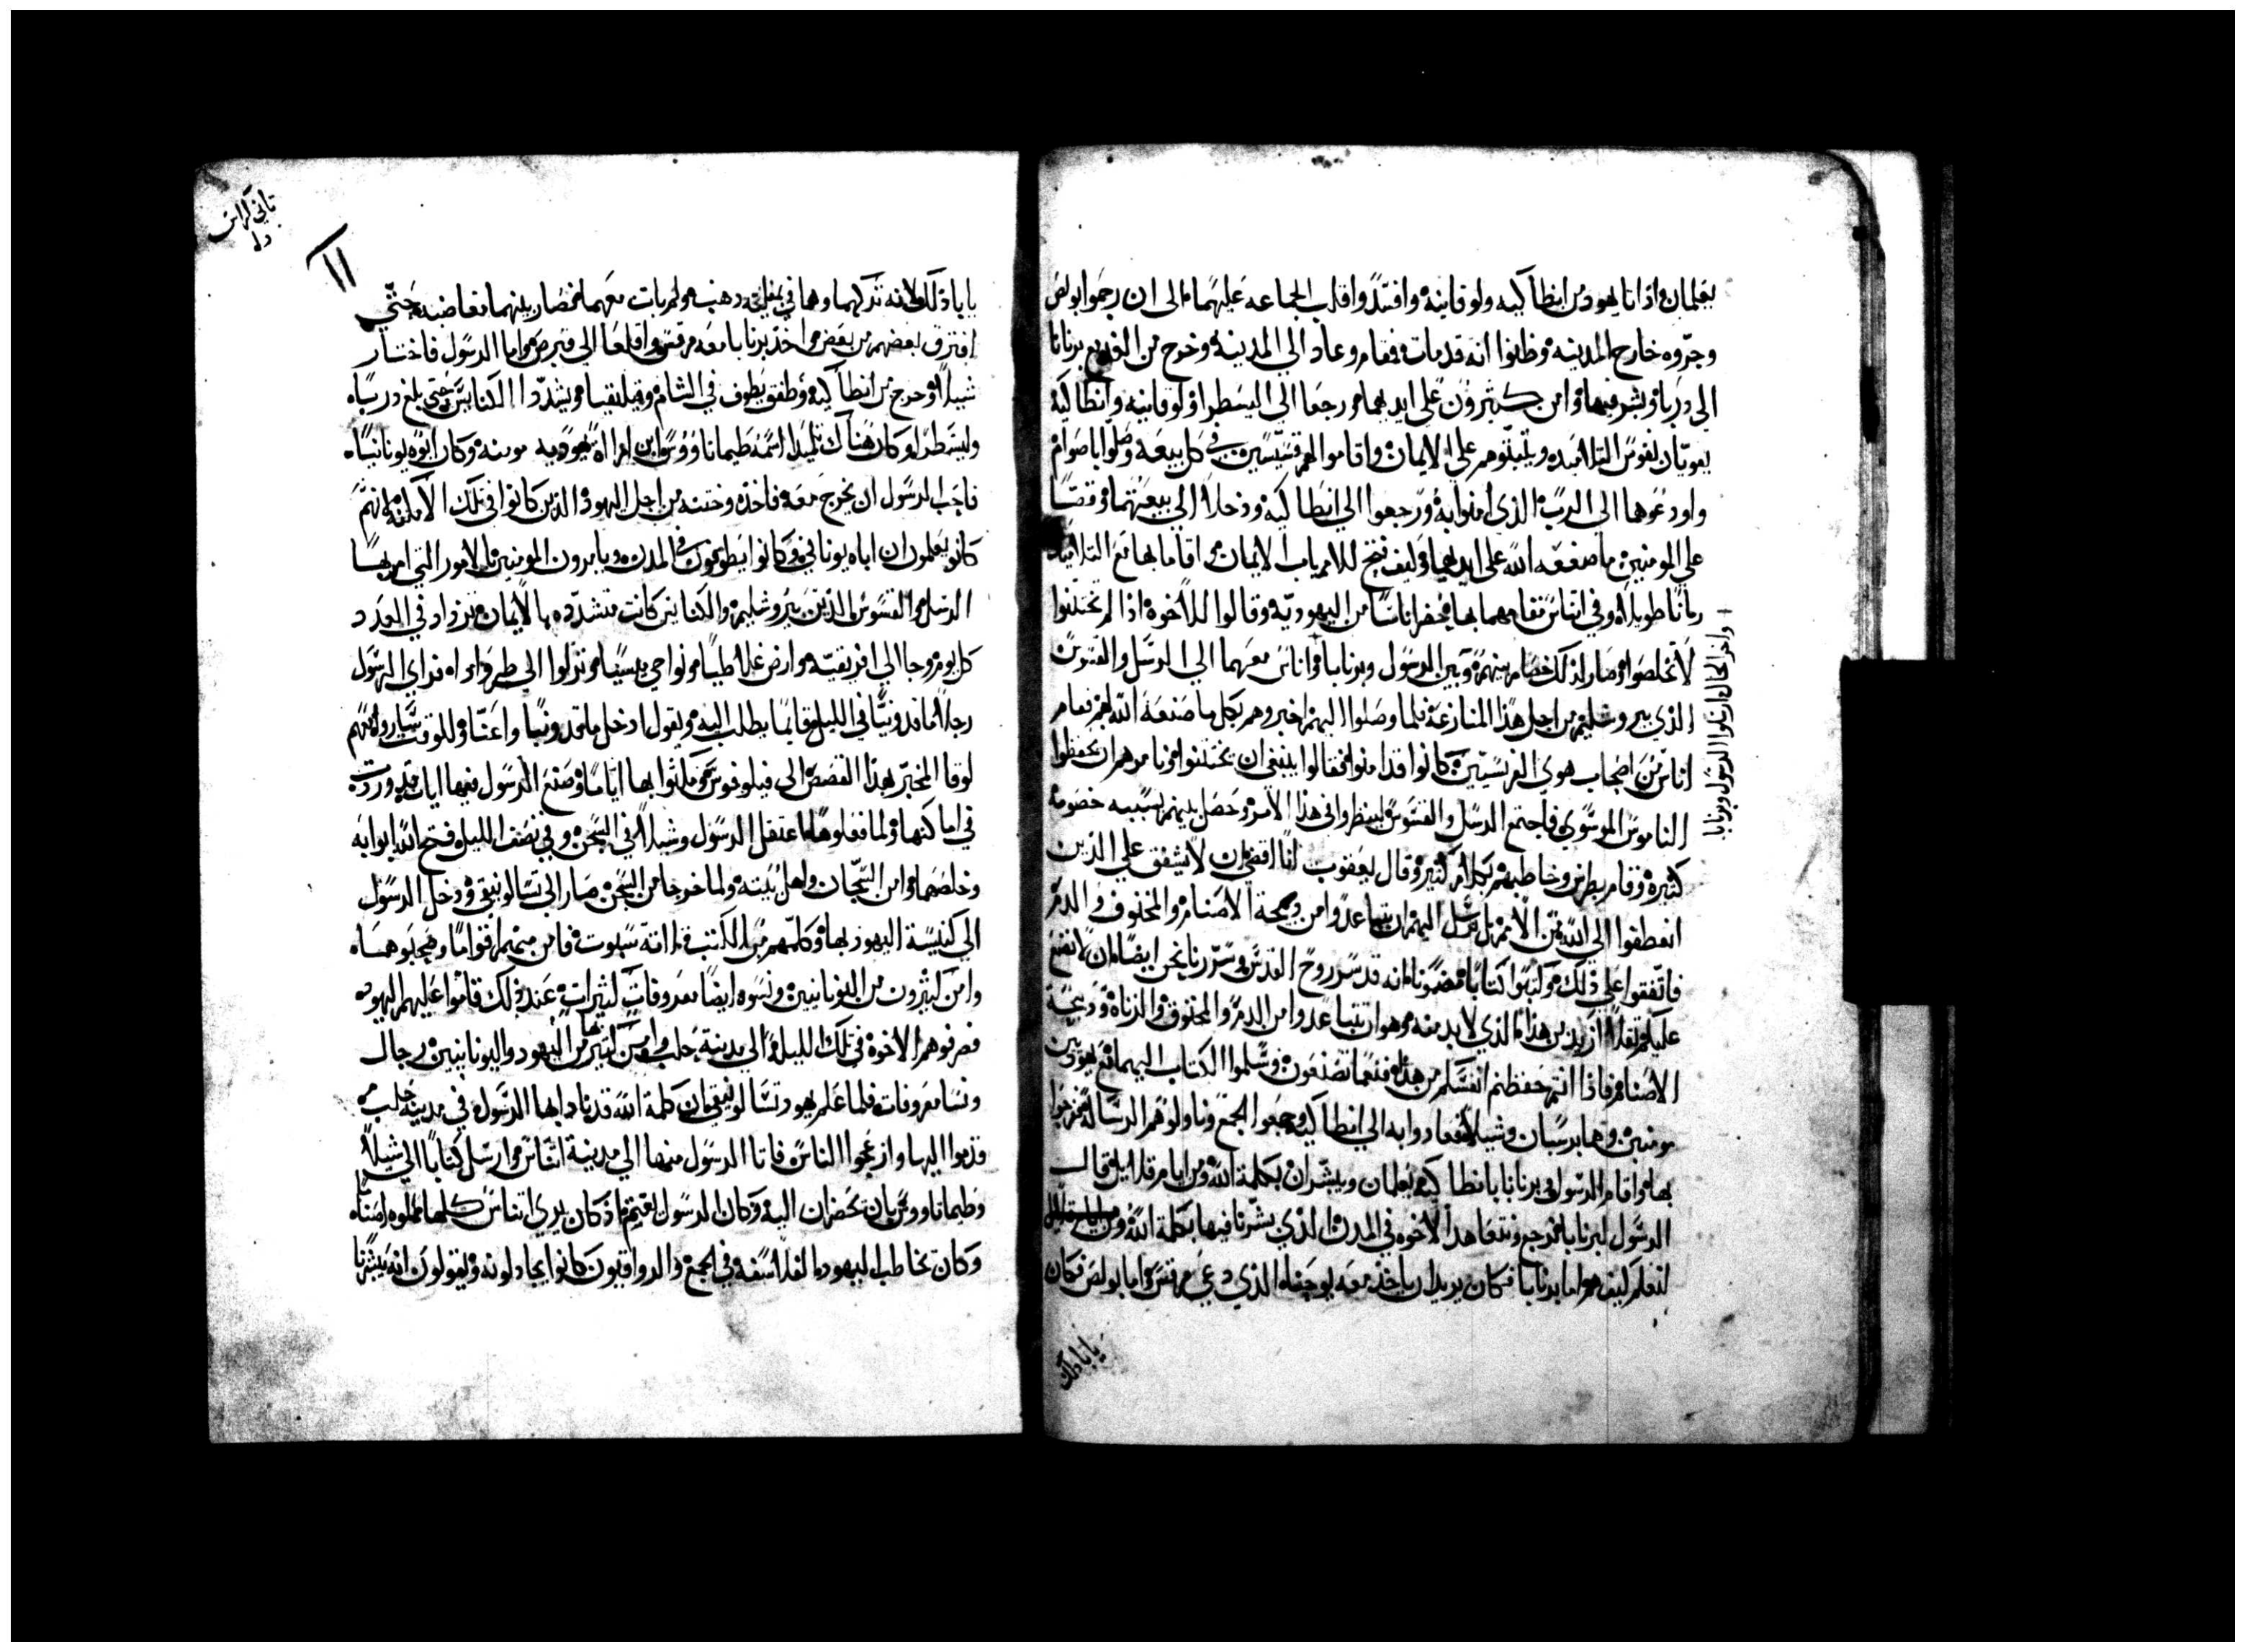 يعلمان اذ اتا يهود من انطاكيه ولوقانيه وافتدوا قلب الجماعه عليهما الى ان رجموا بولص
وجرّوه خارج المدينه وظنوا انه قد مات فقام وعاد الي المدينة وخرج من الغد مع برنابا
الى دربا وبشر فيها وامن كثيرون على ايديهما ورجعا الى اليسطرا ولوقانيه وانطاكيه
يقويان نفوس التلاميده ويثبتوهم على الايمان واقاموا لهم قسّيسين في كل بيعه وصلّوا باصوام
واودعوهما الى الرب الذي امنوا به ورجعوا الي انطاكيه ودخلا الى بيعتهما وقصّا
على المومنين ما صنعه الله على ايديهما وكيف فتح للامم باب الايمان واقاما بها مع التلاميد
زمانا طويلا وفي اتناس مقامهما بها حضر اناسا من اليهوديّه وقالوا للاخوه اذا لم تختتنوا
لا تخلصوا وصار لذلك خصام بينهم وبين الرسول وبرنابا واناس معهما الى الرسل والقسوس
الذي بيروشليم من اجل هذا المنازعة فلما وصلوا اليهم اخبروهم بكل ما صنعه الله لهم فقام
اناس من اصحاب هوي الفريسيين كانوا قد امنوا فقالوا ينبغي ان يختتنوا ونامرهم ان يحفظوا
الناموس الموسوي فاجتمع الرسل والقسوس لينظروا في هذا الامر وحصل بينهم بسببه خصومه
كثيره وقام بطرس وخاطبهم بكلام كثير وقال يعقوب انا اقضي ان لا يشفق علي الذين
انعطفوا الي الله من الامم بل نرسل اليهم ان يتباعدوا من وبحة الاصنام والمخنوق والدم
فاتّفقوا على ذلك وكتبوا كتابا مضمونه انه قد سر روح القدس وسرّرنا نحن ايضا ان لا نضع
عليكم ثقلا ازيد من هذا الذي لا بد منه وهو ان تتباعدوا من الدم والمخنوق والزناه ودبحة
الاصنام فاذا انتم حفظتم انفسكم من هذه فنعما تصنعون وسلموا الكتاب اليهما مع يهوديين
مومنين وهما برسبان وشيلا فعادوا به الي انطاكيه وجمعوا الجمع وناولوهم الرساله ففرحوا
بها واقام الرسول وبرنابا بانطاكيه يعلمان ويبشران بكلمة الله ومن ايام قلايل قال
الرسول لبرنابا نرجع ونتعاهد الاخوه في المدن الذي بشّرنا فيها بكلمة الله
لنعلم كيف هم واما برنابا فكان يريد ان ياخذ معه يوحنا الذي دعي مرقس واما بولص فكان
واخر الحال ارسلوا الرسول وبرنابا
يابا دلك
تاني كراس
يابا ذلك لانه تركهما وهما في وذهب ولم يات معهما فصار بينهما مغاضبه حتّي
افترق بعضهم من بعض واخذ برنابا معه مرقس واقلعا الي قبرص واما الرسول فاختار
شيلا وخرج من انطاكيه وطفق يطوف في الشام وقيليقيا ويشدّد الكنايس حتى بلغ دربيا
وليسطرا وكان هناك تلميدا اسمه طيماتاووس ابن امراة يهوديه مومنه وكان ابوه يونانيا
فاحب الرسول ان يخرج معه فاخذه وختنه من اجل اليهود الذين كانوا في تلك الاماكن لانهم
كانوا يعلمون ان اباه يوناني وكانوا يطوفون في المدن ويامرون المومنين بالامور التي امر بها
الرسل والقسوس الذين بيروشليم والكنايس كانت متشدّده بالايمان وتزداد في العدد
كل يوم وجا الي افريقيه وارض غلاطيا ونواحي بيسيا ونزلوا الي طرواده فراي الرسول
رجلا ماقدونيّا في الليل قايما يطلب اليه ويقول ادخل ماقدونيا واعنّا وللوقت سار وامنهم
لوقا المخبر بهذا القصص الى فيلوفوس ومكثوا بها اياما وصنع الرسول فيها ايات وردت
في اماكنها ولما فعلوها اعتقل الرسول وشيلا في السجن وفي نصف الليل فتح الله ابوابه
وخلصهما وامن السّجان واهل بيته ولما خرجا من السجن صار الى تسالونيقي ودخل الرسول
الى كنيسة اليهود بها وكلّمهم من الكتب فامن منهم اقواما وصحبوهما
وامن كثيرون من اليونانيين ونسوه ايضا معروفات كثيرات عند ذلك قاموا عليهم اليهود
فصرفوهم الاخوه في تلك الليلة الي مدينة حلب وامن بها كثير من اليهود واليونانيين رجال
ونسا معروفات فلما علم يهود تسالونيقي ان كلمة الله قد نادا بها الرسول في مدينة حلب
قدموا اليها وازعجوا الناس فاتا الرسول منها الي مدينة اتناس وارسل كتابا الي شيلا
وطيماتاووس بان يحضران اليه وكان الرسول يغتم اذ كان يري اتناس كلها مملوه اصناما
وكان يخاطب اليهود الفلاسفه في الجمع والرواقيون كانوا يجادلونه ويقولون انه يبشرنا